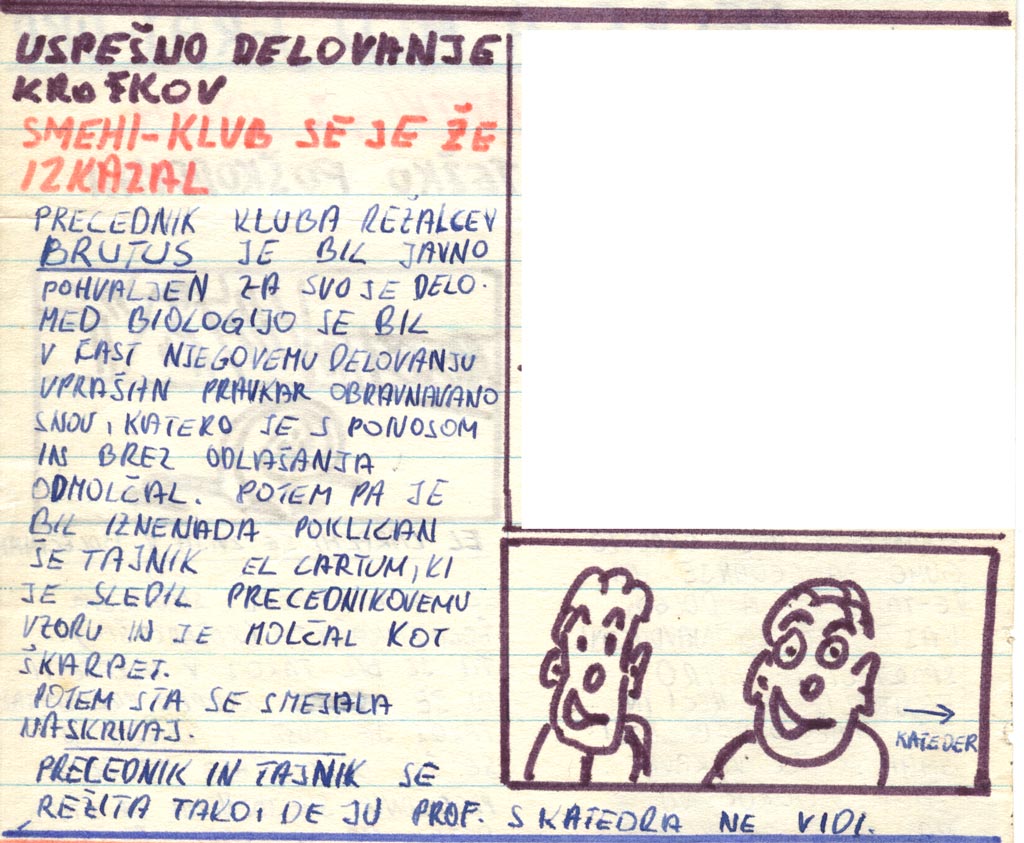 USPEŠNO DELOVANJE
KROŽKOV
SMEHI-KLUB SE JE ŽE
IZKAZAL
PRECEDNIK KLUBA REŽALCEV
BRUTUS JE BIL JAVNO
POHVALJEN ZA SVOJE DELO.
MED BIOLOGIJO JE BIL
V ČAST NJEGOVEMU DELOVANJU
VPRAŠAN PRAVKAR OBRAVNAVANO
SNOV, KATERO JE S PONOSOM
IN BREZ ODLAŠANJA
ODMOLČAL. POTEM PA JE
BIL IZNENADA POKLICAN
ŠE TAJNIK EL CARTUM, KI
JE SLEDIL PRECEDNIKOVEMU
VZORU IN JE MOLČAL KOT
ŠKARPET.
POTEM STA SE SMEJALA
NASKRIVAJ.
KATEDER
PRECEDNIK IN TAJNIK SE
REŽITA TAKO, DE JU PROF. S KATEDRA NE VIDI.